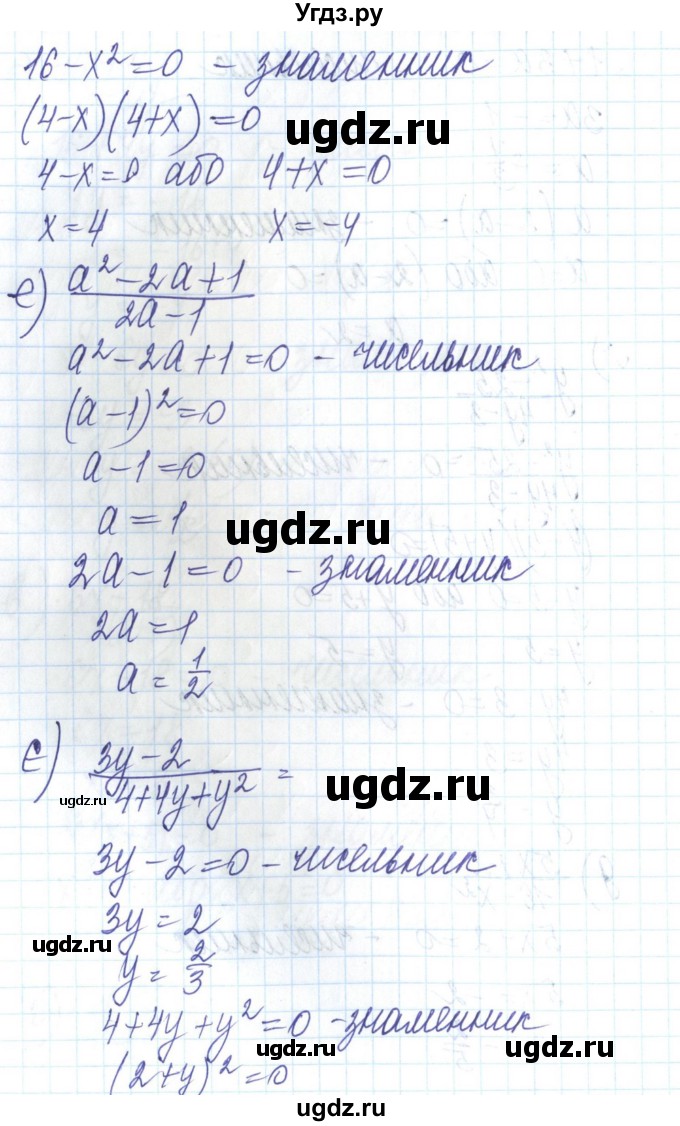 Угдз.ру
16-x²=0 - знаменник
(4-x)(4+x)=0
ugdz.ru
4-x=0 або 4+x=0
x=4 x=-4
е) (a²-2a+1)/(2a-1)
a²-2a+1=0 - чисельник
(a-1)²=0
a-1=0
a=1
ugdz.ru
2a-1=0 - знаменник
2a=1
a=1/2
є) (3y-2)/(4+4y+y²)=
ugdz.ru
ugdz.ru
3y-2=0 - чисельник
3y=2
ugdz.ru
y=2/3
4+4y+y²=0 - знаменник
ugdz.ru
ugdz.ru
(2+y)²=0
ugdz.ru